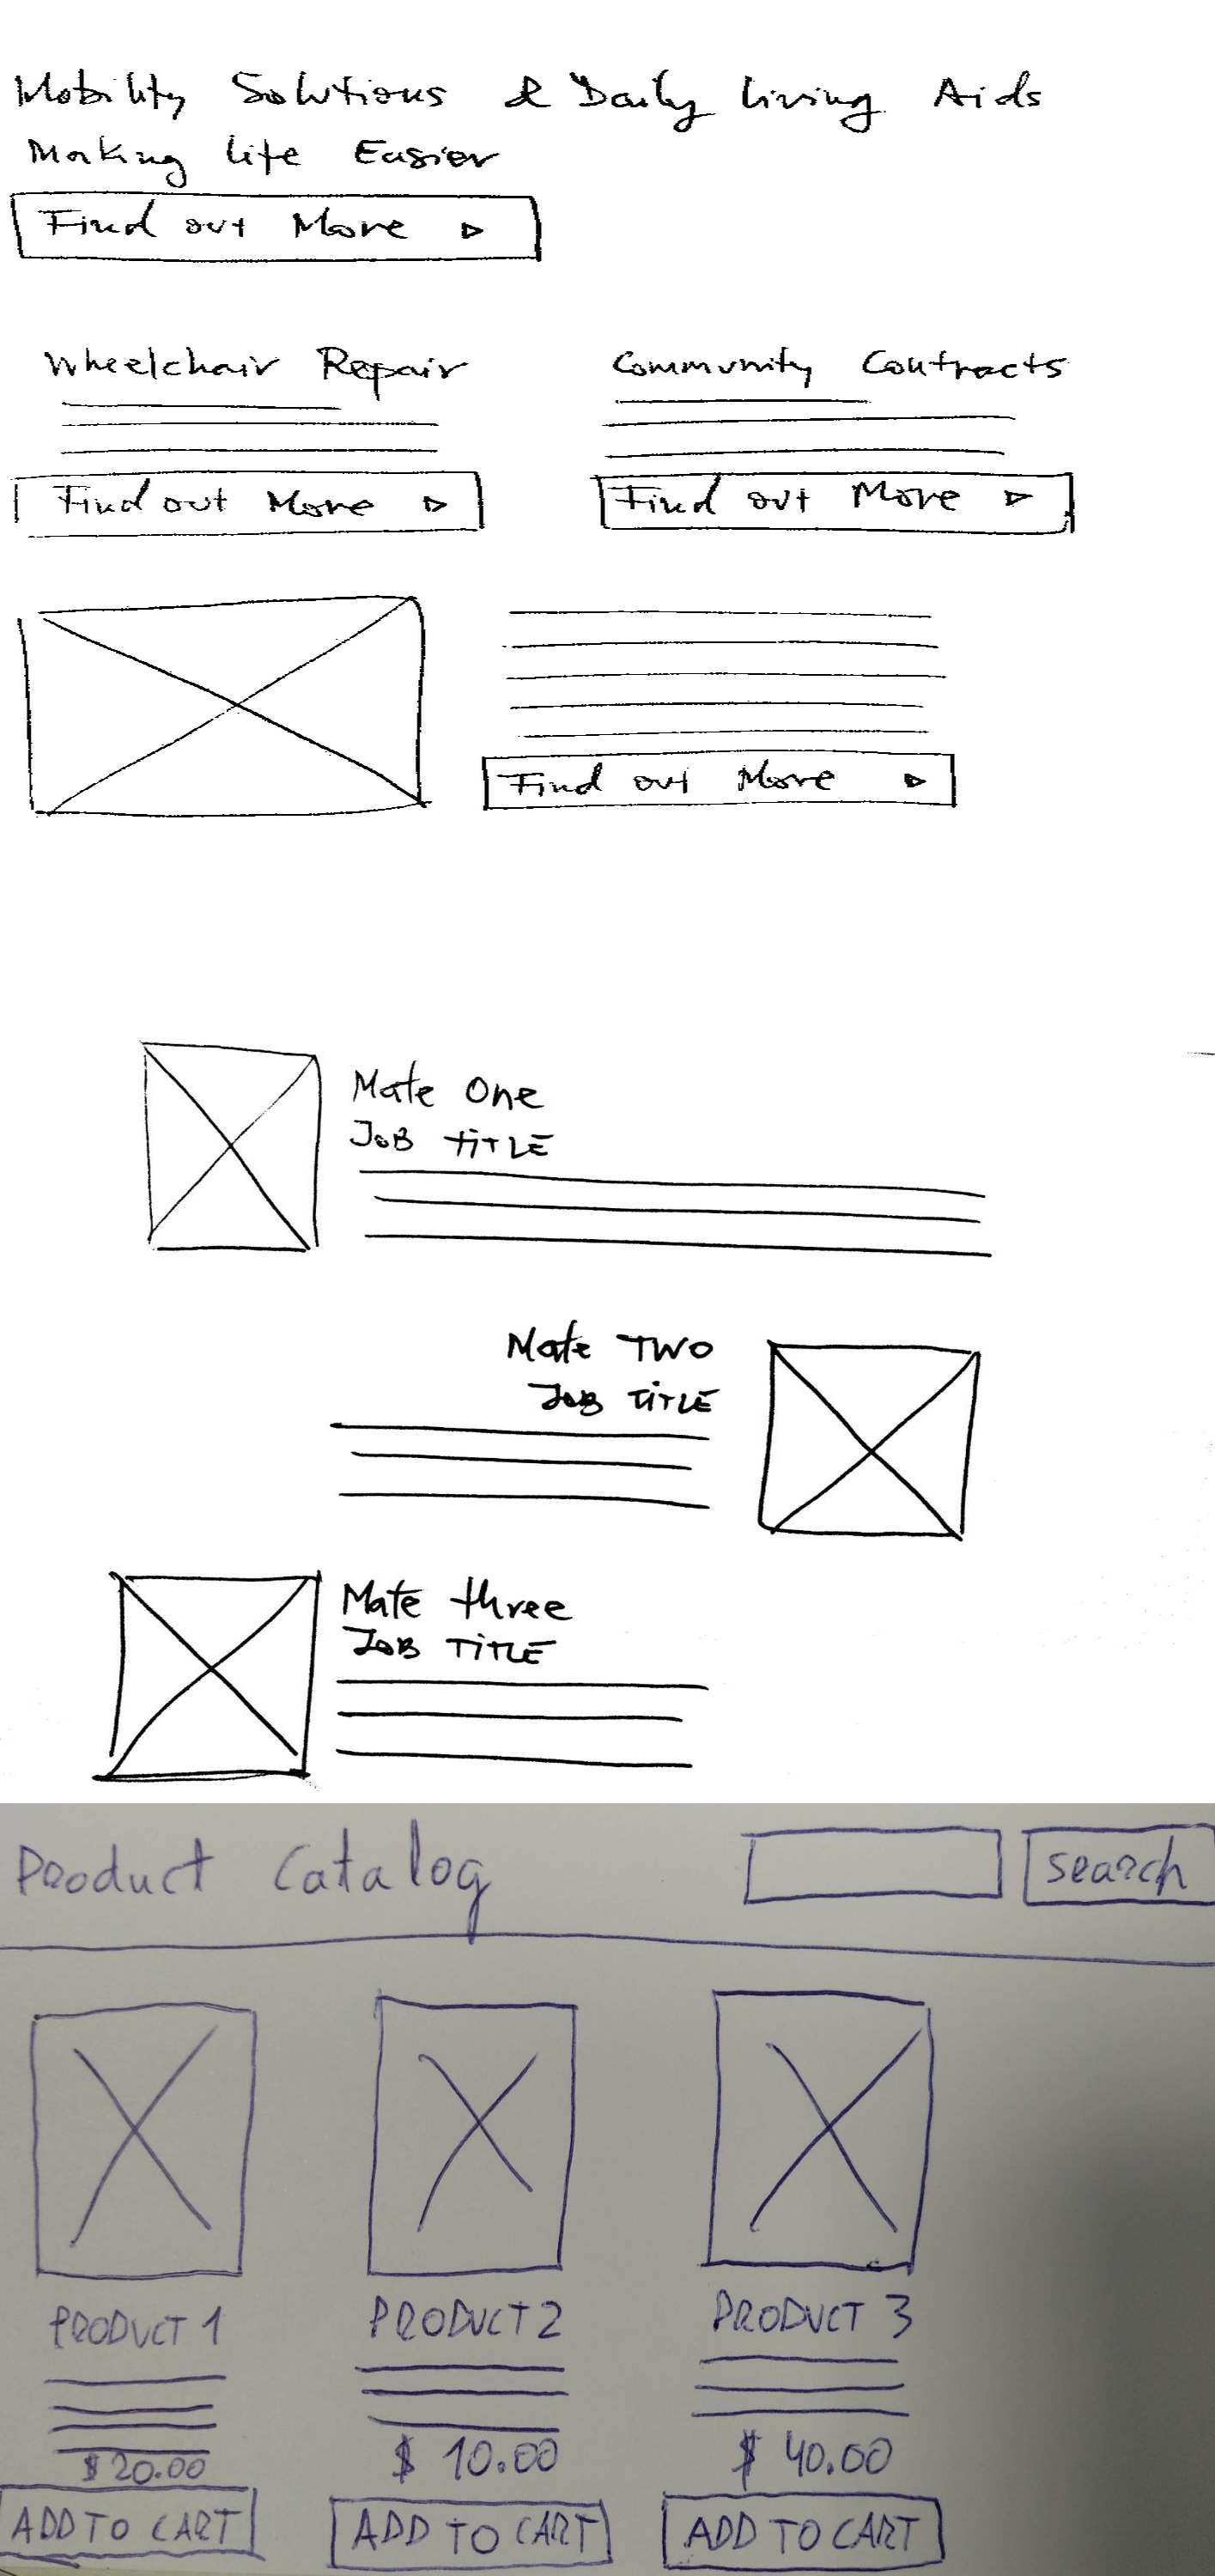 Mobility Solutions & Daily living Aids
Making life Easier
Find out More ▷
Wheelchair Repair
Community Contracts
Find out More ▷
Find out More ▷
Find out More ▷
Mate One
JOB TITLE
Mate TWO
JOB TITLE
Mate three
JOB TITLE
Product Catalog
search
PRODUCT 1
PRODUCT 2
PRODUCT 3
$20.00
$ 10.00
$ 40.00
ADD TO CART
ADD TO CART
ADD TO CART